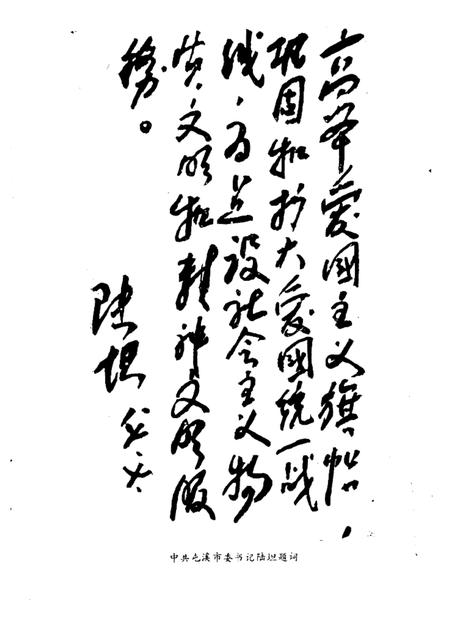 高举爱国主义旗帜，
巩固和扩大爱國统一战
线，为建设社会主义物
质文明和精神文明服
务。
陆坦
中共屯溪市委书记陆坦题词